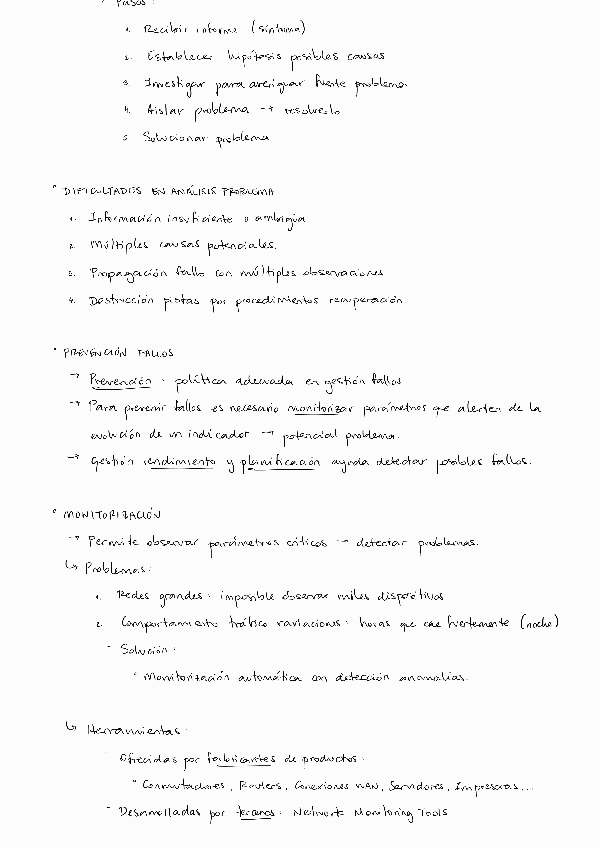 Pasos:
1. Recibir informe (síntoma)
2. Establecer hipótesis posibles causas
3. Investigar para averiguar fuente problema
4. Aislar problema → resolverlo
5. Solucionar problema
° DIFICULTADES EN ANÁLISIS PROBLEMA
1. Información insuficiente o ambigua
2. Múltiples causas potenciales.
3. Propagación fallo con múltiples observaciones
4. Destrucción pistas por procedimientos recuperación.
° PREVENCIÓN FALLOS
→ Prevención: política adecuada en gestión fallos
→ Para prevenir fallos es necesario monitorizar parámetros que alerten de la
evolución de un indicador → potencial problema.
→ Gestión rendimiento y planificación ayuda detectar posibles fallos.
° MONITORIZACIÓN
→ Permite observar parámetros críticos → detectar problemas.
↳ Problemas:
1. Redes grandes: imposible observar miles dispositivos
2. Comportamiento tráfico variaciones: horas que cae fuertemente (noche)
- Solución:
° Monitorización automática con detección anomalías.
↳ Herramientas:
- Ofrecidas por fabricantes de productos:
° Conmutadores, Routers, Conexiones WAN, Servidores, Impresoras...
- Desarrolladas por terceros: Network Monitoring Tools